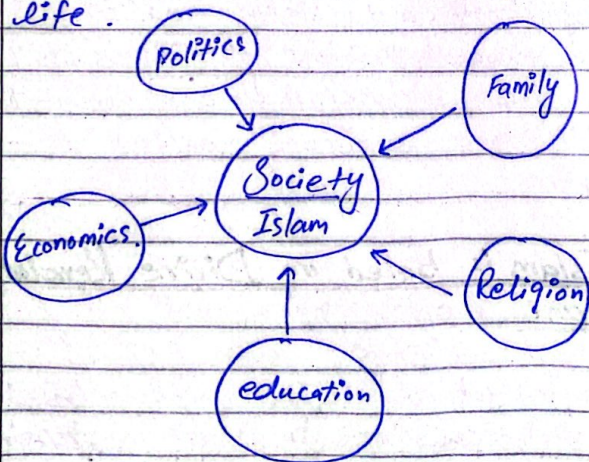 life.
Politics
Family
Society
Islam
Economics.
Religion
education